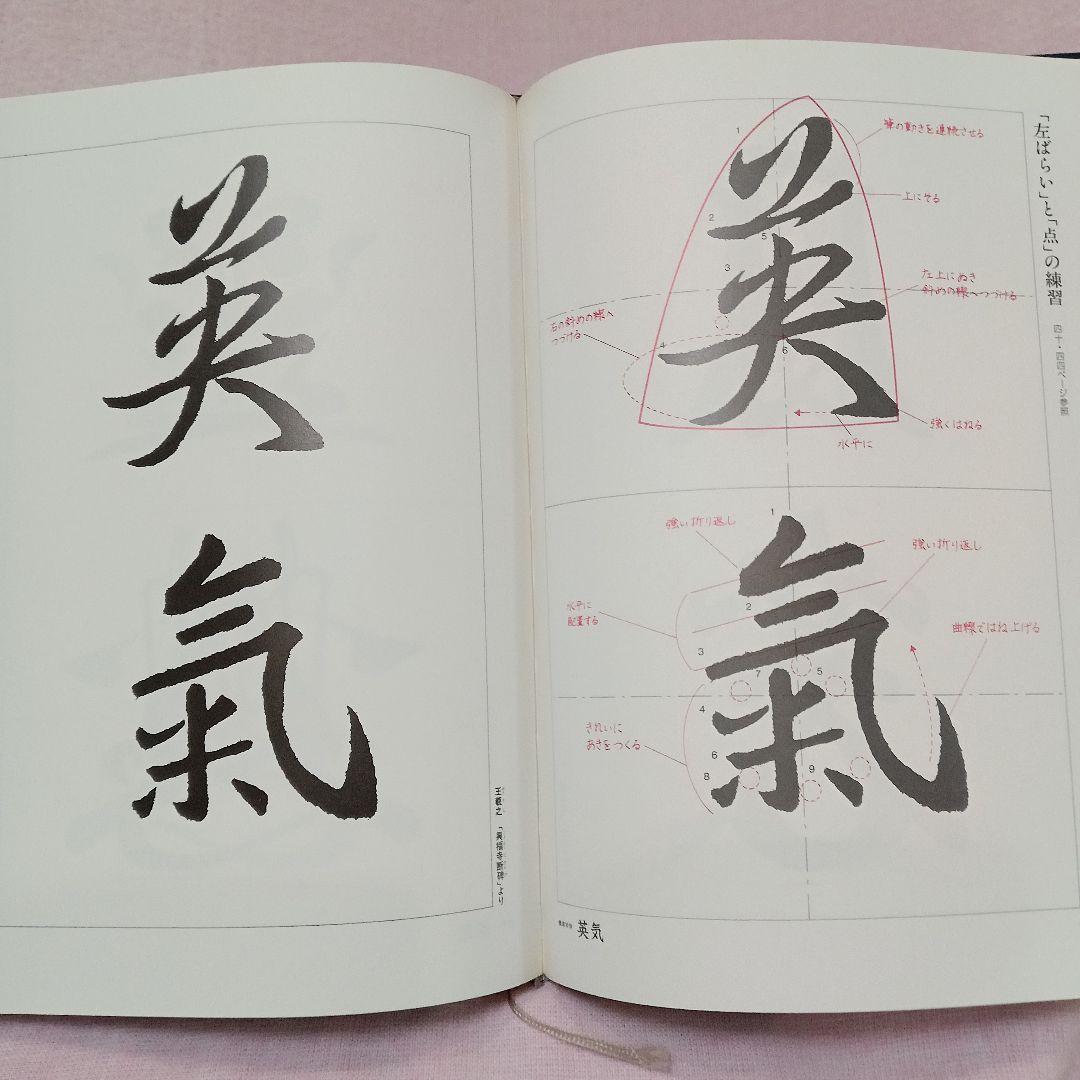 英
氣
王羲之「興福寺断碑」より
「左ばらい」と「点」の練習
四十・四四ページ参照
英
1
2
3
4
5
6
筆の動きを連続させる
上にそる
左上にぬき
斜めの線へつづける
右の斜めの線へ
つづける
強くはねる
水平に
氣
1
2
3
4
5
6
7
8
9
強い折り返し
強い折り返し
水平に
配置する
曲線ではね上げる
きれいに
あきをつくる
英気